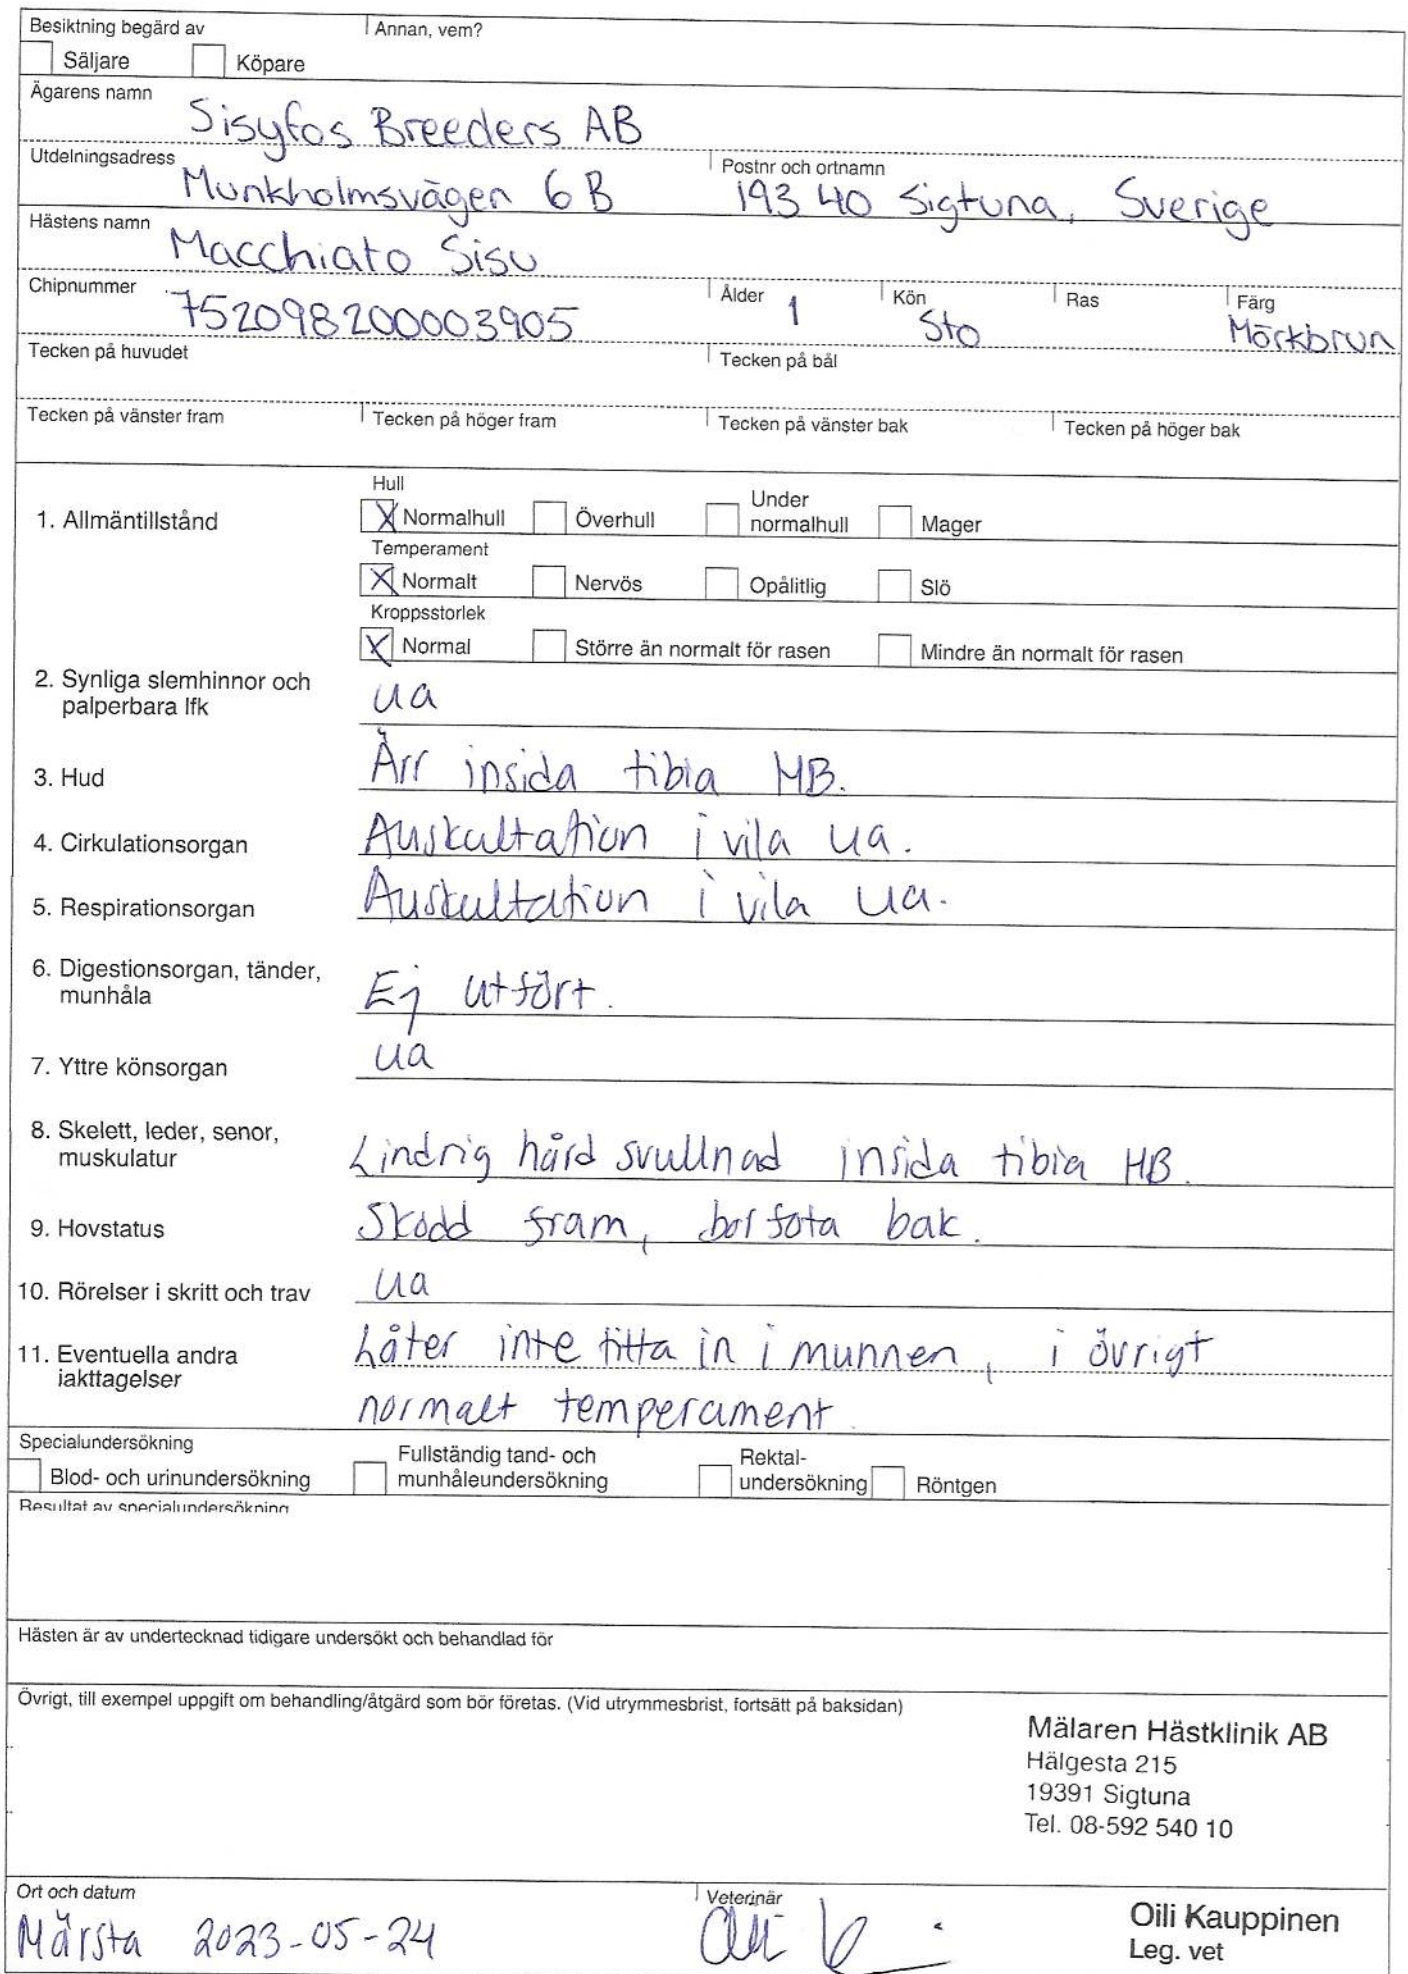 Besiktning begärd av Annan, vem?
Säljare Köpare
Ägarens namn
Sisyfos Breeders AB
Utdelningsadress Postnr och ortnamn
Munkholmsvägen 6 B 193 40 Sigtuna, Sverige
Hästens namn
Macchiato Sisu
Chipnummer Ålder Kön Ras Färg
752098200003905 1 Sto Mörkbrun
Tecken på huvudet Tecken på bål
Tecken på vänster fram Tecken på höger fram Tecken på vänster bak Tecken på höger bak
Hull
1. Allmäntillstånd X Normalhull Överhull Under normalhull Mager
Temperament
X Normalt Nervös Opålitlig Slö
Kroppsstorlek
X Normal Större än normalt för rasen Mindre än normalt för rasen
2. Synliga slemhinnor och
palperbara lfk
ua
3. Hud Ärr insida tibia HB.
4. Cirkulationsorgan Auskultation i vila ua.
5. Respirationsorgan Auskultation i vila ua.
6. Digestionsorgan, tänder,
munhåla
Ej utfört.
7. Yttre könsorgan ua
8. Skelett, leder, senor,
muskulatur
Lindrig hård svullnad insida tibia HB.
9. Hovstatus Skodd fram, barfota bak.
10. Rörelser i skritt och trav ua
11. Eventuella andra
iakttagelser
Låter inte titta in i munnen, i övrigt
normalt temperament.
Specialundersökning
Blod- och urinundersökning Fullständig tand- och munhåleundersökning Rektal-undersökning Röntgen
Resultat av specialundersökning
Hästen är av undertecknad tidigare undersökt och behandlad för
Övrigt, till exempel uppgift om behandling/åtgärd som bör företas. (Vid utrymmesbrist, fortsätt på baksidan)
Mälaren Hästklinik AB
Hälgesta 215
19391 Sigtuna
Tel. 08-592 540 10
Ort och datum Veterinär
Märsta 2023-05-24
Oili Kauppinen
Leg. vet